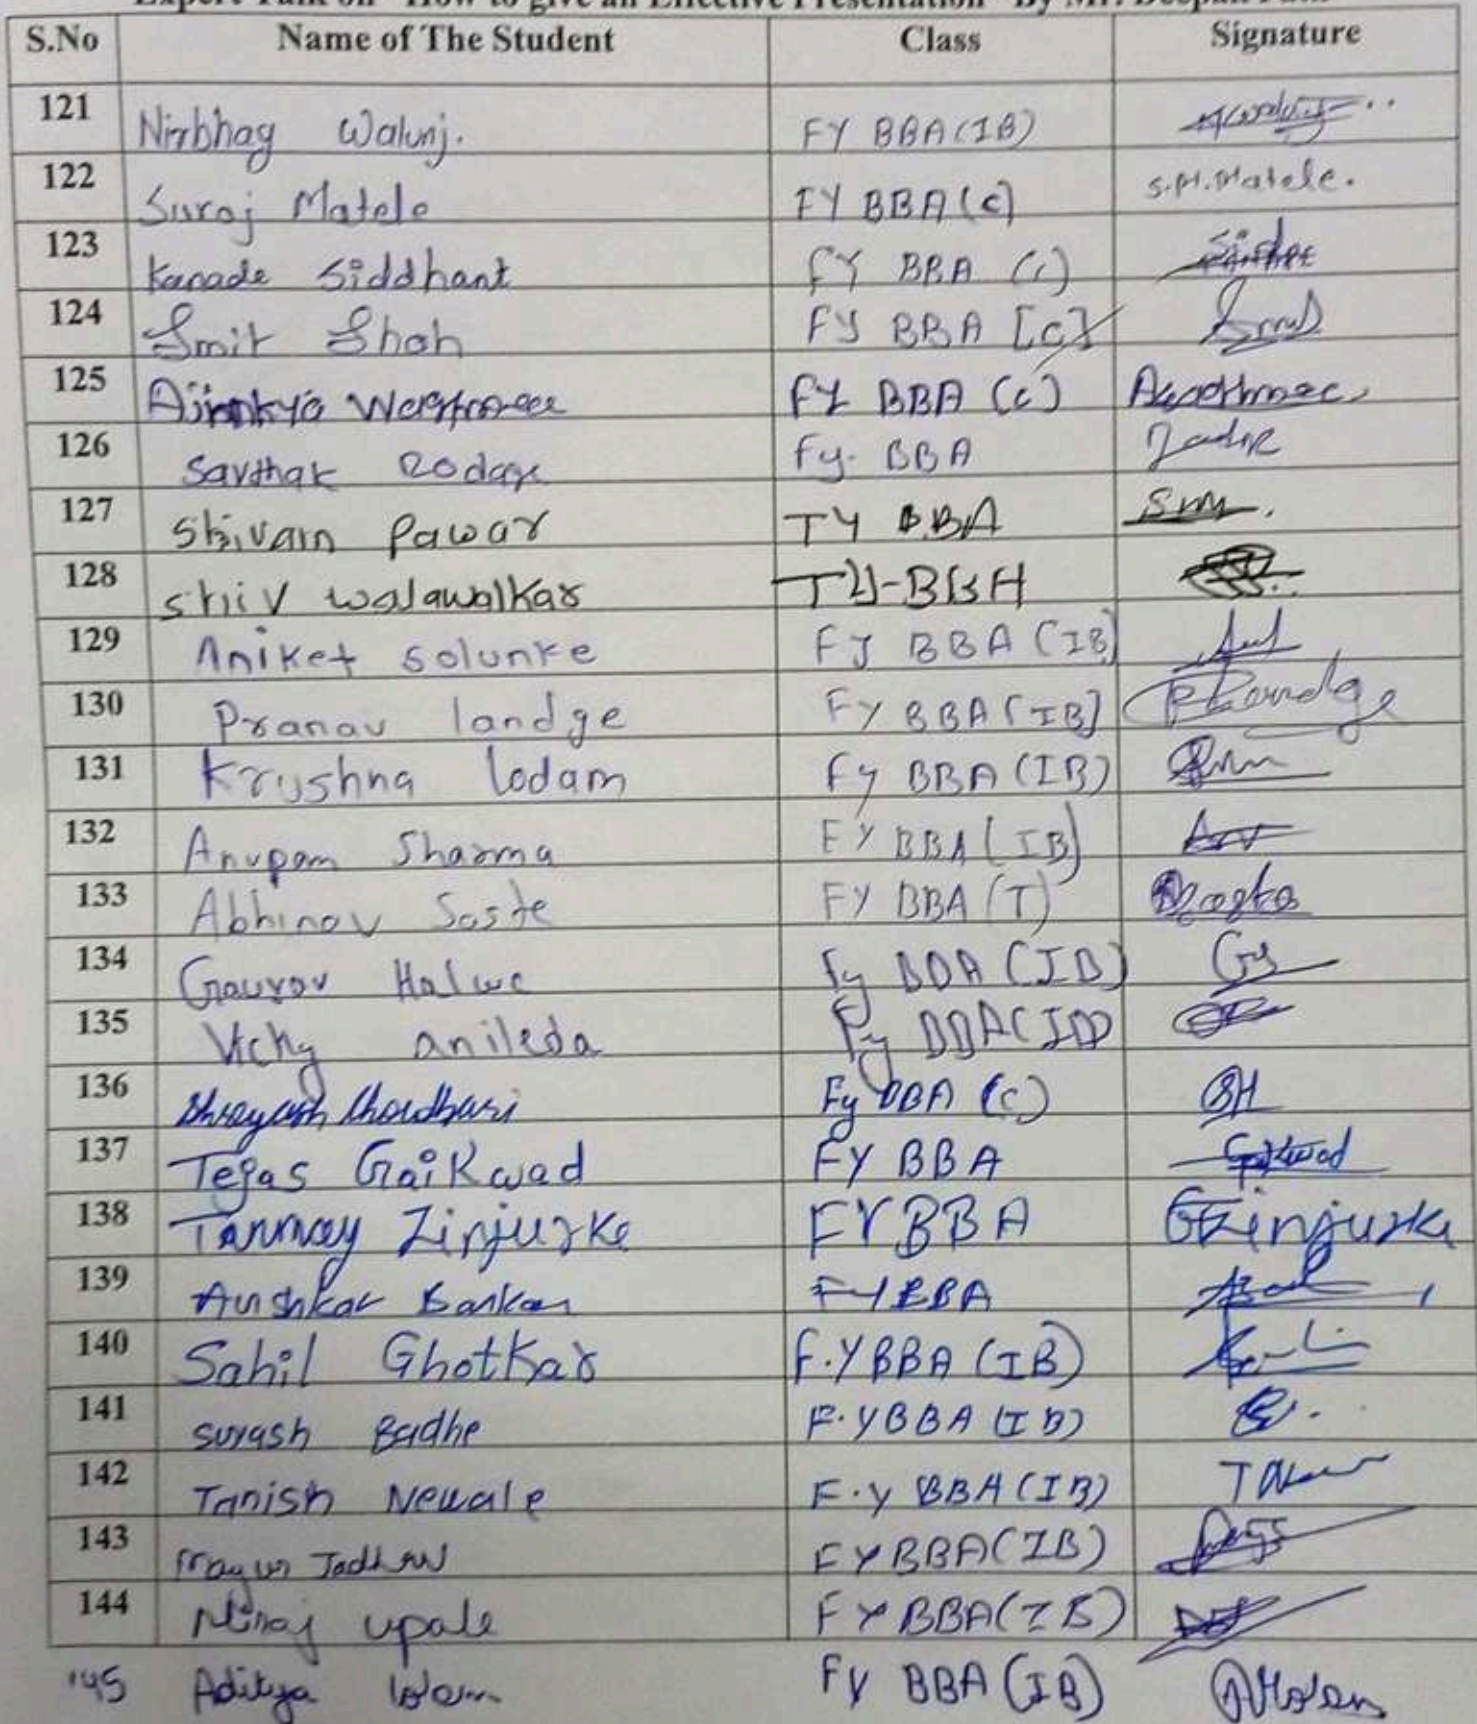 Expert Talk on "How to give an Effective Presentation" By Mr. Deepak
S.No Name of The Student Class Signature
121 Nirbhay Walunj. FY BBA(IB)
122 Suraj Matele FY BBA(c) S.M.Matele.
123 Kanade Siddhant FY BBA (c)
124 Smit Shah FY BBA [C]
125 Ajinkya FY BBA (c)
126 Sarthak Rodage Fy. BBA
127 Shivam Pawar TY BBA
128 Shiv walawalkar TY-BBA
129 Aniket solunke FY BBA (IB)
130 Pranav landge FY BBA (IB] PLandge
131 Krushna lodam Fy BBA (IB)
132 Anupam Sharma FY BBA (IB)
133 Abhinav Saste FY BBA (T)
134 Gaurav Halwe Fy BBA (IB)
135 Vicky anileda Fy BBA(IB)
136 Shreyash Choudhari Fy BBA (c)
137 Tejas Gaikwad FY BBA Gaikwad
138 Tanmay Zinjurke FY BBA Zinjurke
139 Aushkar Bankar FY BBA
140 Sahil Ghotkar F.Y BBA (IB)
141 suyash Badhe F.Y BBA (IB)
142 Tanish Newale F.Y BBA (IB)
143 Mayur Jadhav FY BBA (IB)
144 Niraj upale FY BBA (IB)
145 Aditya FY BBA (IB)